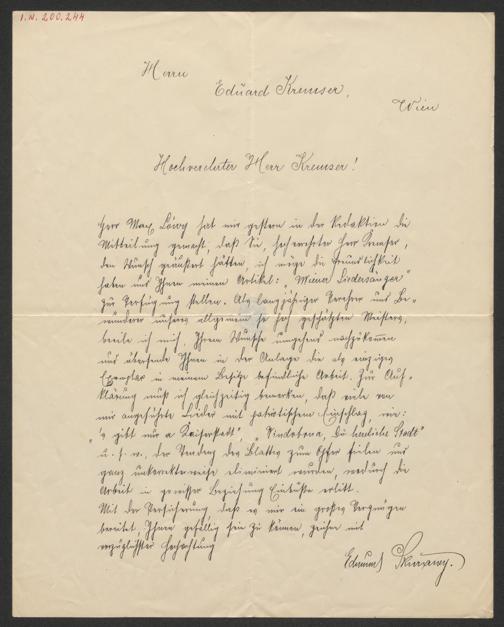 I.N. 200.244
Herrn
Eduard Kremser,
Wien
Hochverehrter Herr Kremser!
Herr Max Löwy hat mir gestern in der Redaktion die
Mitteilung gemacht, daß Sie, hochverehrter Herr Kremser,
den Wunsch geäußert hätten, ich möge die Freundlichkeit
haben und Ihnen meinen Artikel: „Wiener Liedersänger"
zur Verfügung stellen. Als langjähriger Verehrer und Be-
wunderer unseres allgemein so hoch geschätzten Meisters,
beeile ich mich, Ihrem Wunsche umgehend nachzukommen
und übersende Ihnen in der Anlage die als einziges
Exemplar in meinem Besitze befindliche Arbeit. Zur Auf-
klärung muß ich gleichzeitig bemerken, daß viele von
mir angeführte Lieder mit patriotischem Einschlag, wie:
„'s gibt nur a Kaiserstadt", „Vindobona, du herrliche Stadt"
u. s. w., der Tendenz des Blattes zum Opfer fielen und
ganz unkorrekterweise eliminiert wurden, wodurch die
Arbeit in gewisser Beziehung Einbuße erlitt.
Mit der Versicherung, daß es mir ein großes Vergnügen
bereitet, Ihnen gefällig sein zu können, zeichne mit
vorzüglichster Hochachtung
Edmund